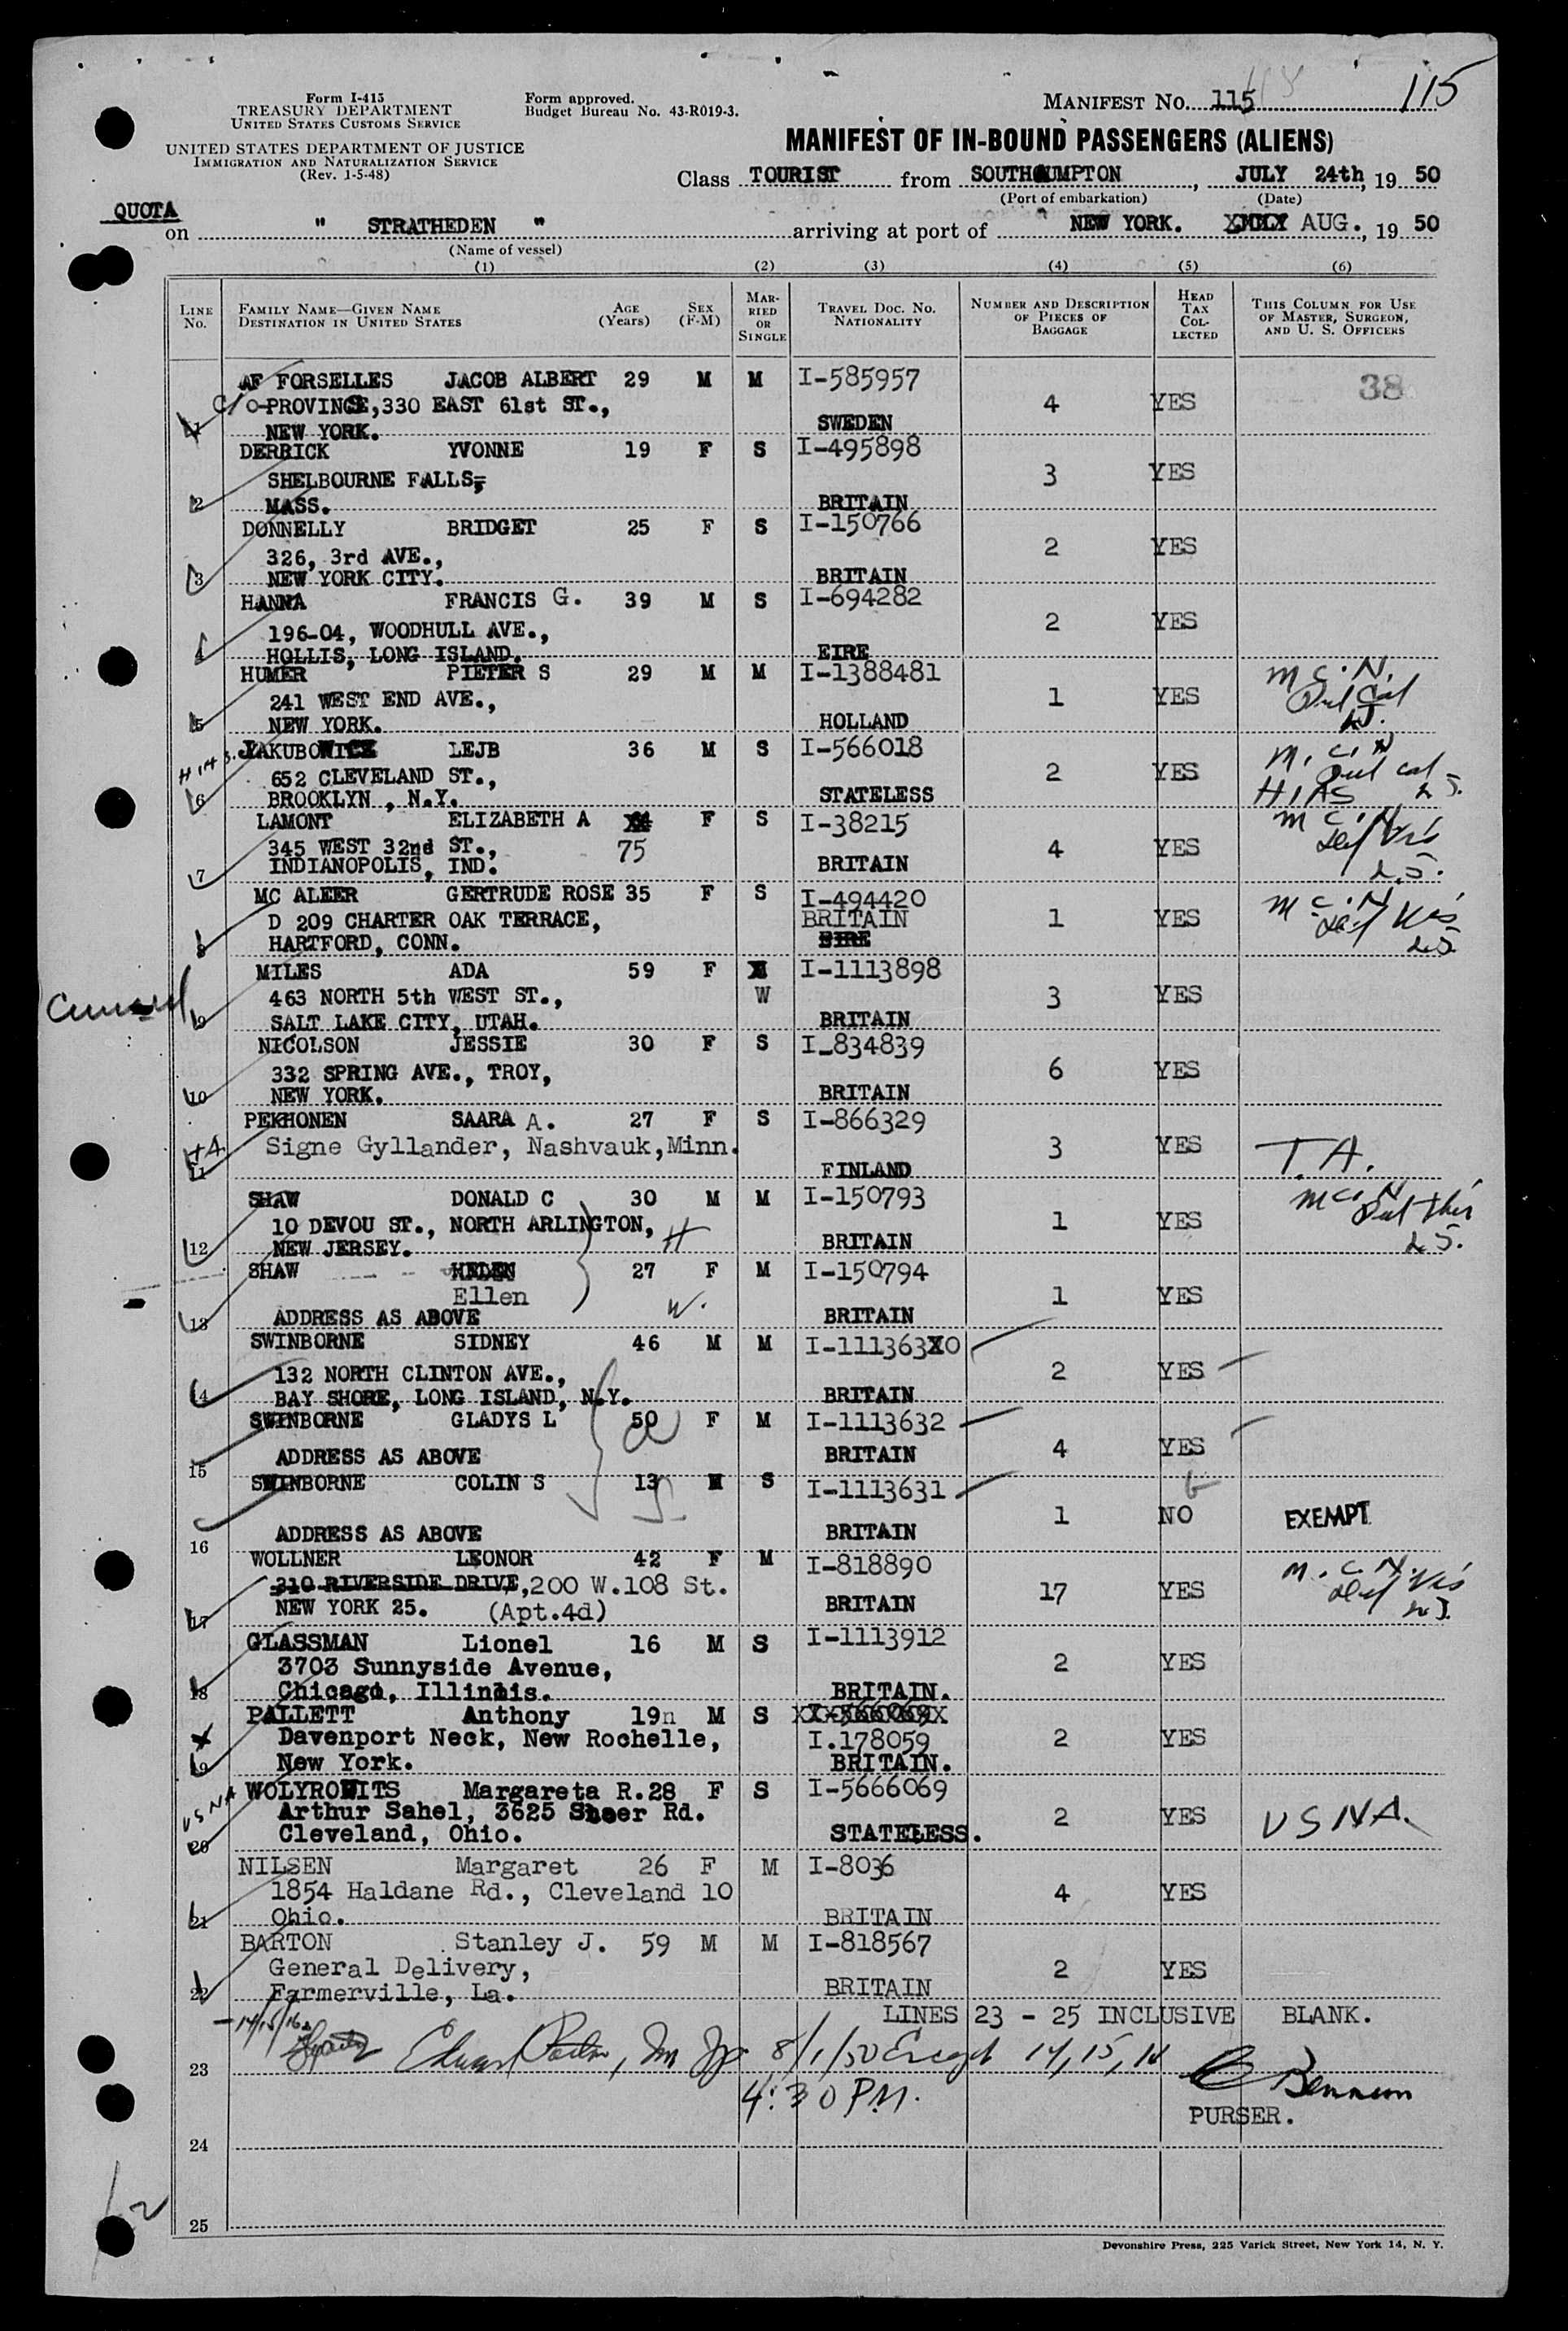 Form I-415
TREASURY DEPARTMENT
UNITED STATES CUSTOMS SERVICE
UNITED STATES DEPARTMENT OF JUSTICE
IMMIGRATION AND NATURALIZATION SERVICE
(Rev. 1-5-48)
Form approved.
Budget Bureau No. 43-R019-3.
MANIFEST NO. 115 115
MANIFEST OF IN-BOUND PASSENGERS (ALIENS)
Class TOURIST from SOUTHAMPTON, JULY 24th, 19 50
(Port of embarkation) (Date)
QUOTA
on " STRATHEDEN " arriving at port of NEW YORK. AUG., 19 50
(Name of vessel)
(1) (2) (3) (4) (5) (6)
LINE NO. FAMILY NAME—GIVEN NAME DESTINATION IN UNITED STATES AGE (Years) SEX (F-M) MARRIED OR SINGLE TRAVEL DOC. NO. NATIONALITY NUMBER AND DESCRIPTION OF PIECES OF BAGGAGE HEAD TAX COLLECTED THIS COLUMN FOR USE OF MASTER, SURGEON, AND U. S. OFFICERS
AF FORSELLES JACOB ALBERT 29 M M I-585957 38
C/O-PROVINCE,330 EAST 61st ST., 4 YES
1 NEW YORK. SWEDEN
DERRICK YVONNE 19 F S I-495898
SHELBOURNE FALLS, 3 YES
2 MASS. BRITAIN
DONNELLY BRIDGET 25 F S I-150766
326, 3rd AVE., 2 YES
3 NEW YORK CITY. BRITAIN
HANNA FRANCIS G. 39 M S I-694282
196-04, WOODHULL AVE., 2 YES
4 HOLLIS, LONG ISLAND. EIRE
HUMER PIETER S 29 M M I-1388481 M C. N.
241 WEST END AVE., 1 YES
5 NEW YORK. HOLLAND
HIAS. JAKUBOWICZ LEJB 36 M S I-566018 M. C. N
652 CLEVELAND ST., 2 YES
6 BROOKLYN , N.Y. STATELESS HIAS L S.
LAMONT ELIZABETH A F S I-38215 M C. N.
345 WEST 32nd ST., 75 4 YES
7 INDIANOPOLIS, IND. BRITAIN L.S.
MC ALEER GERTRUDE ROSE 35 F S I-494420 M C. N
D 209 CHARTER OAK TERRACE, BRITAIN 1 YES
8 HARTFORD, CONN. EIRE L.S.
MILES ADA 59 F M I-1113898
Cunard 463 NORTH 5th WEST ST., W 3 YES
9 SALT LAKE CITY, UTAH. BRITAIN
NICOLSON JESSIE 30 F S I-834839
332 SPRING AVE., TROY, 6 YES
10 NEW YORK. BRITAIN
PEKHONEN SAARA A. 27 F S I-866329
Signe Gyllander, Nashvauk,Minn. 3 YES T.A.
11 FINLAND
SHAW DONALD C 30 M M I-150793 M C. N
10 DEVOU ST., NORTH ARLINGTON, H 1 YES
12 NEW JERSEY. BRITAIN L S.
SHAW HELEN 27 F M I-150794
Ellen W. 1 YES
13 ADDRESS AS ABOVE BRITAIN
SWINBORNE SIDNEY 46 M M I-111363X0
132 NORTH CLINTON AVE., 2 YES
14 BAY SHORE, LONG ISLAND, N.Y. BRITAIN
SWINBORNE GLADYS L 50 F M I-1113632
15 ADDRESS AS ABOVE BRITAIN 4 YES
SWINBORNE COLIN S 13 M S I-1113631
1 NO EXEMPT
16 ADDRESS AS ABOVE BRITAIN
WOLLNER LEONOR 42 F M I-818890 M. C. N.
310 RIVERSIDE DRIVE,200 W.108 St. 17 YES
17 NEW YORK 25. (Apt.4d) BRITAIN
GLASSMAN Lionel 16 M S I-1113912
3703 Sunnyside Avenue, 2 YES
18 Chicago, Illinois. BRITAIN.
PALLETT Anthony 19n M S XI-566069X
Davenport Neck, New Rochelle, I.178059 2 YES
19 New York. BRITAIN.
USNA WOLYROWITS Margareta R.28 F S I-5666069
Arthur Sahel, 3625 Sheer Rd. 2 YES USNA.
20 Cleveland, Ohio. STATELESS.
NILSEN Margaret 26 F M I-8036
1854 Haldane Rd., Cleveland 10 4 YES
21 Ohio. BRITAIN
BARTON Stanley J. 59 M M I-818567
General Delivery, 2 YES
22 Farmerville, La. BRITAIN
LINES 23 - 25 INCLUSIVE BLANK.
-14/15/16
23 8/1/50 Except 14, 15, 16
4:30 PM.
PURSER.
24
25
Devonshire Press, 225 Varick Street, New York 14, N. Y.